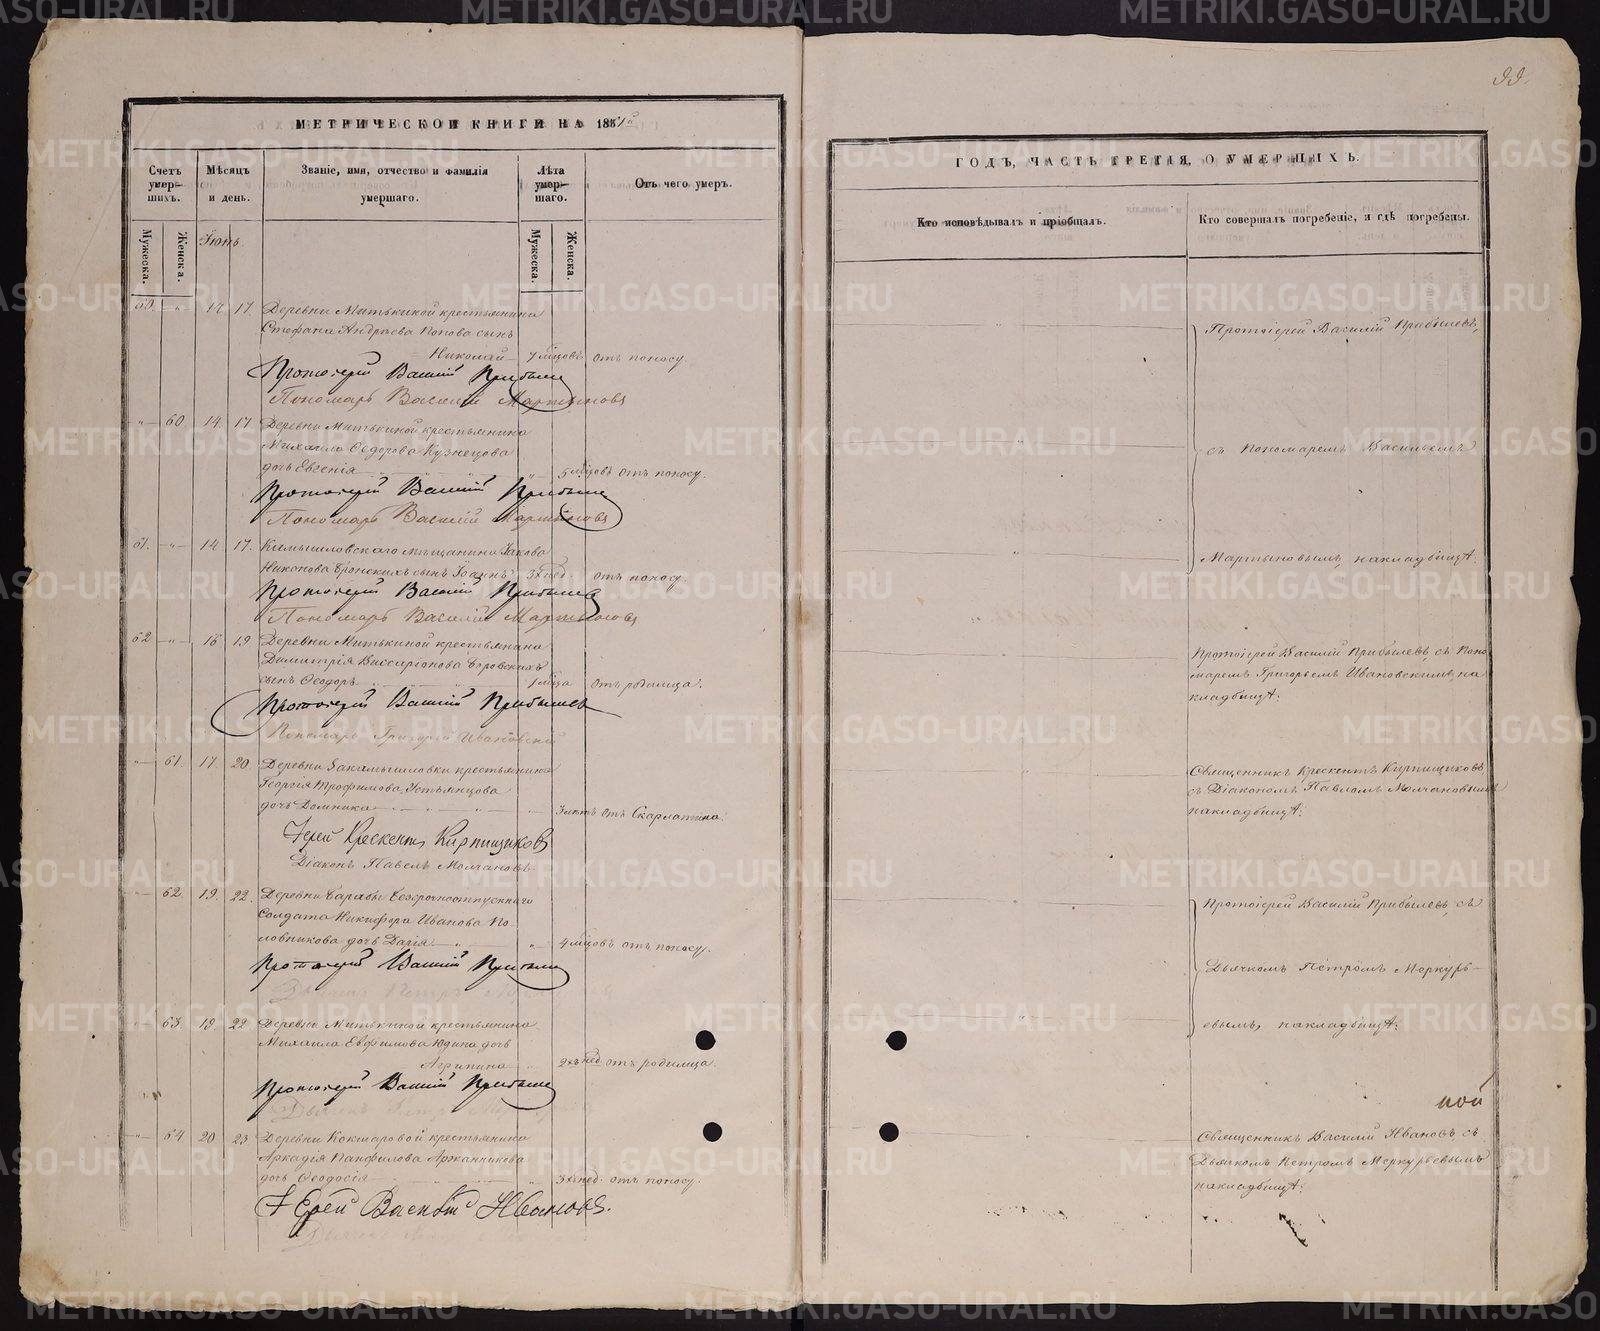 99.
МЕТРИЧЕСКОЙ КНИГИ НА 1861й
Счетъ умер-шихъ.
Мѣсяцъ и день.
Званіе, имя, отчество и фамилія умершаго.
Лѣта умер-шаго.
Отъ чего умеръ.
Мужеска.
Женска.
Іюнь.
Мужеска.
Женска.
60. — 14. 17. Деревни Митькиной крестьянина
Стефана Андреева Попова сынъ
Николай — 7 мѣцовъ отъ поносу.
Протоіерей Василій Прибылевъ
Пономарь Василій Мартыновъ
— 60. 14. 17. Деревни Митькиной крестьянина
Михаила Ѳедорова Кузнецова
дочь Евгенія 5 мѣцовъ отъ поносу.
Протоіерей Василій Прибылевъ
Пономарь Василій Мартыновъ
61. — 14. 17. Камышловскаго мѣщанина Іакова
Никонова сынъ Іоаннъ 3хъ нед. отъ поносу.
Протоіерей Василій Прибылевъ
Пономарь Василій Мартыновъ
62 — 16 19 Деревни Митькиной крестьянина
Димитрія Виссаріонова Боровскихъ
сынъ Ѳеодоръ 1 мѣца отъ родимца.
Протоіерей Василій Прибылевъ
Пономарь Григорій Ивановскій
— 61. 17. 20. Деревни Закамышловки крестьянина
Георгія Трофимова Устьянцова
дочь Домника 3 лѣтъ отъ Скарлатина.
Іерей Крескентъ Кирпищиковъ
Діаконъ Павелъ Молчановъ
— 62. 19. 22. Деревни Баравы безсрочноотпускнаго
Солдата Никифора Иванова По-
ловникова дочь Дарія 4 мѣцовъ отъ поносу.
Протоіерей Василій Прибылевъ
Дьячекъ Петръ
— 63. 19. 22. Деревни Митькиной крестьянина
Михаила Евфимова Юдина дочь
Агрипина 2хъ нед. отъ родимца.
Протоіерей Василій Прибылевъ
Дьячекъ Петръ
— 64 20 23 Деревни Кокшаровой крестьянина
Аркадія Панфилова Аржанникова
дочь Ѳеодосія 3хъ нед. отъ поносу.
Іерей Василій Ивановъ.
ГОДЪ, ЧАСТЬ ТРЕТІЯ, О УМЕРШИХЪ.
Кто исповѣдывалъ и пріобщалъ.
Кто совершалъ погребеніе, и гдѣ погребены.
Протоіерей Василій Прибылевъ,
съ Пономаремъ Василіемъ
Мартыновымъ, на кладбищѣ.
Протоіерей Василій Прибылевъ, съ Поно-
маремъ Григорьемъ Ивановскимъ, на
кладбищѣ.
Священникъ Крескентъ Кирпищиковъ
съ Діакономъ Павломъ Молчановымъ
на кладбищѣ.
Протоіерей Василій Прибылевъ, съ
Дьячкомъ Петромъ Меркурь-
евымъ, на кладбищѣ.
Священникъ Василій Ивановъ съ
Дьячкомъ Петромъ Меркурьевымъ
на кладбищѣ.
METRIKI.GASO-URAL.RU